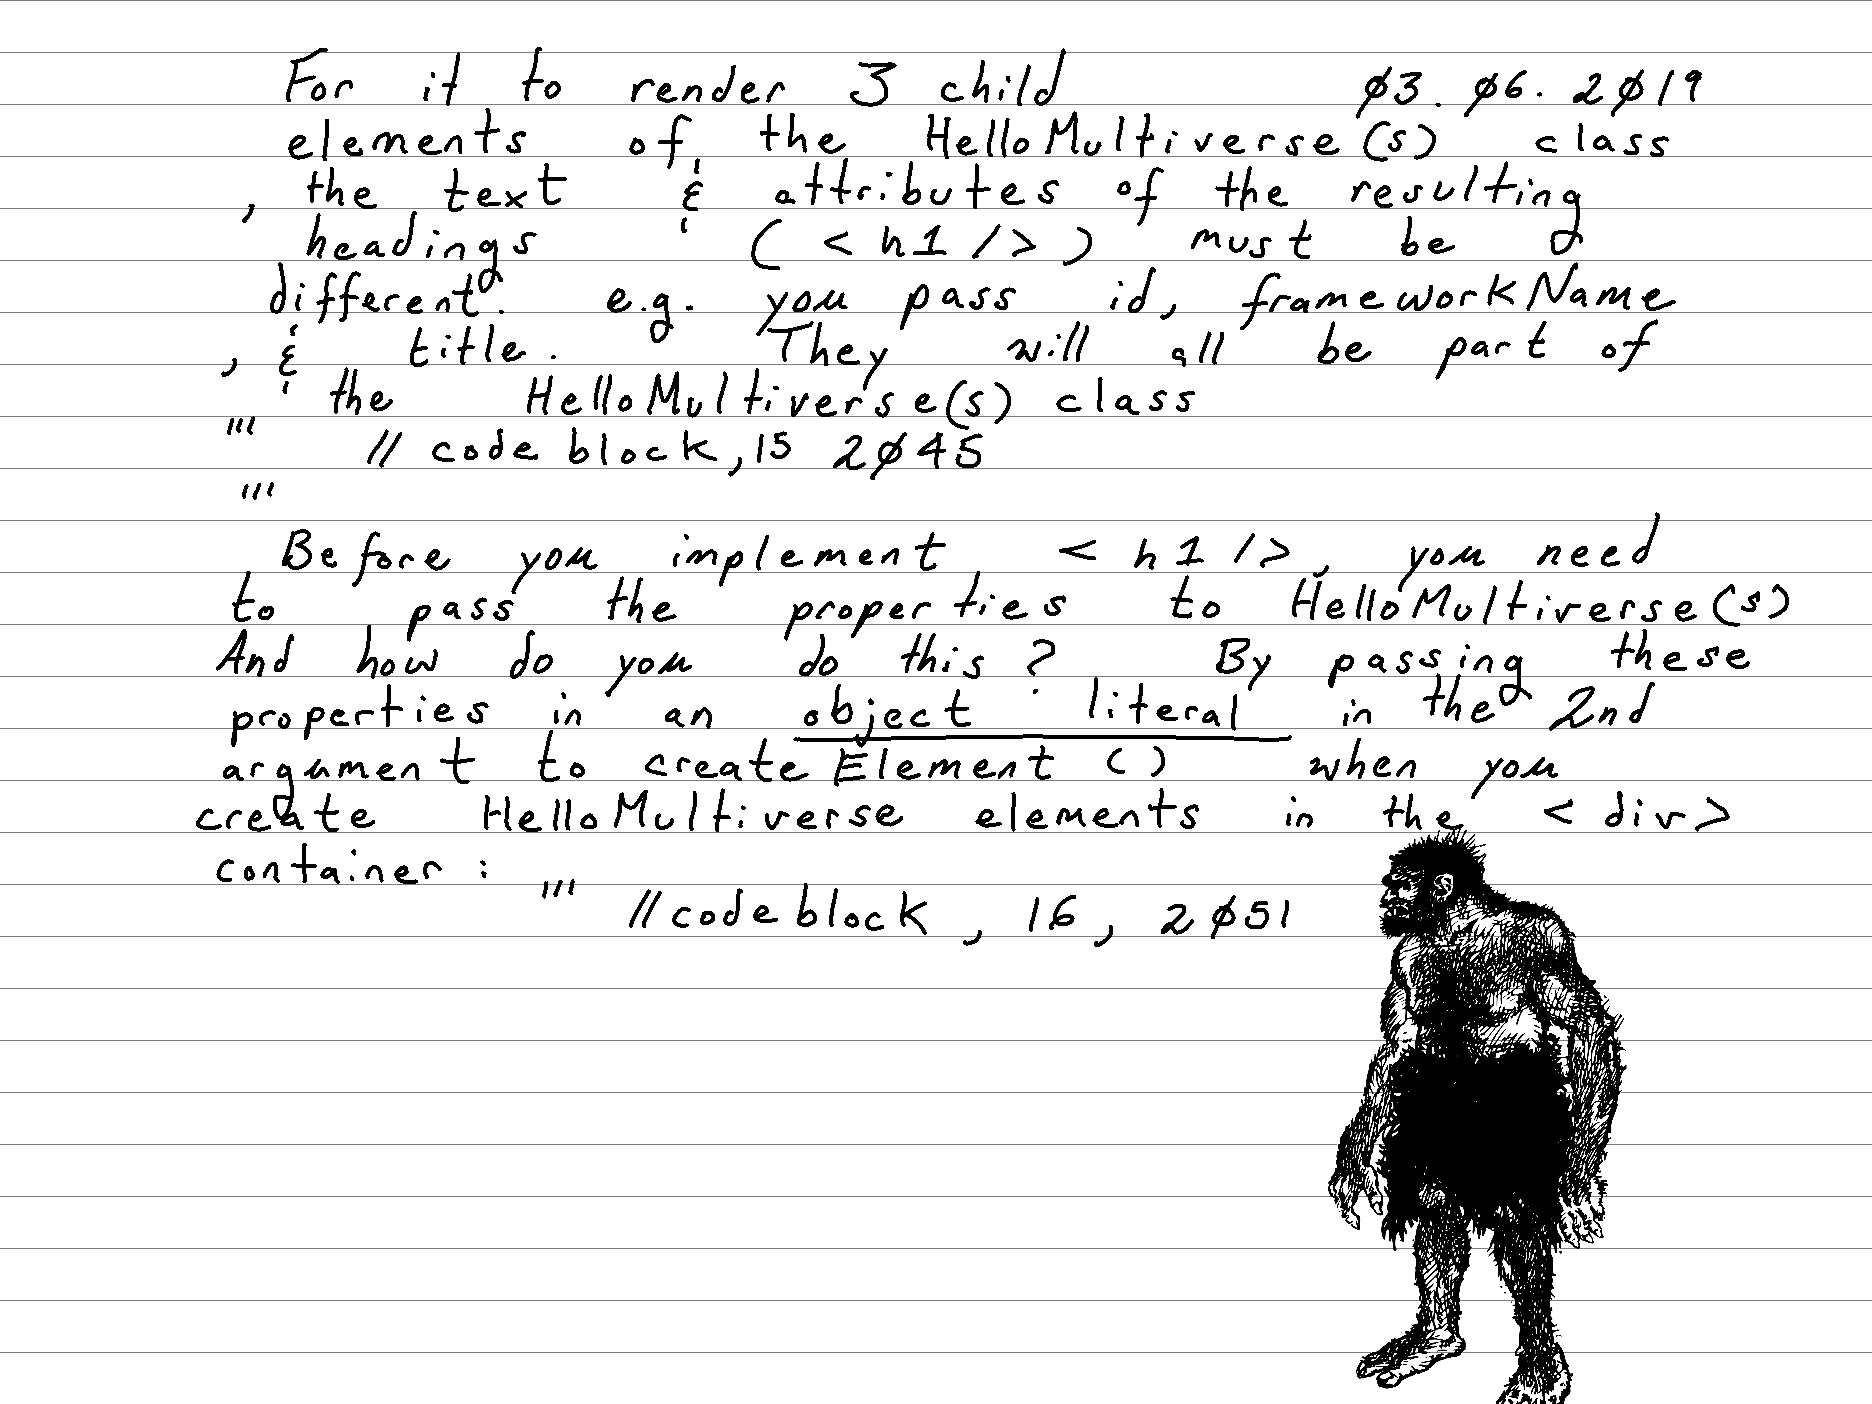 For it to render 3 child ø3. ø6. 2ø19
elements of the HelloMultiverse(s) class
, the text & attributes of the resulting
headings ( < h1 /> ) must be
different. e.g. you pass id, frameworkName
, & title. They will all be part of
the HelloMultiverse(s) class
'''
// code block, 15 2ø45
'''
Before you implement < h1 />, you need
to pass the properties to HelloMultiverse(s)
And how do you do this? By passing these
properties in an object literal in the 2nd
argument to createElement () when you
create HelloMultiverse elements in the < div>
container : '''
// code block , 16 , 2ø51